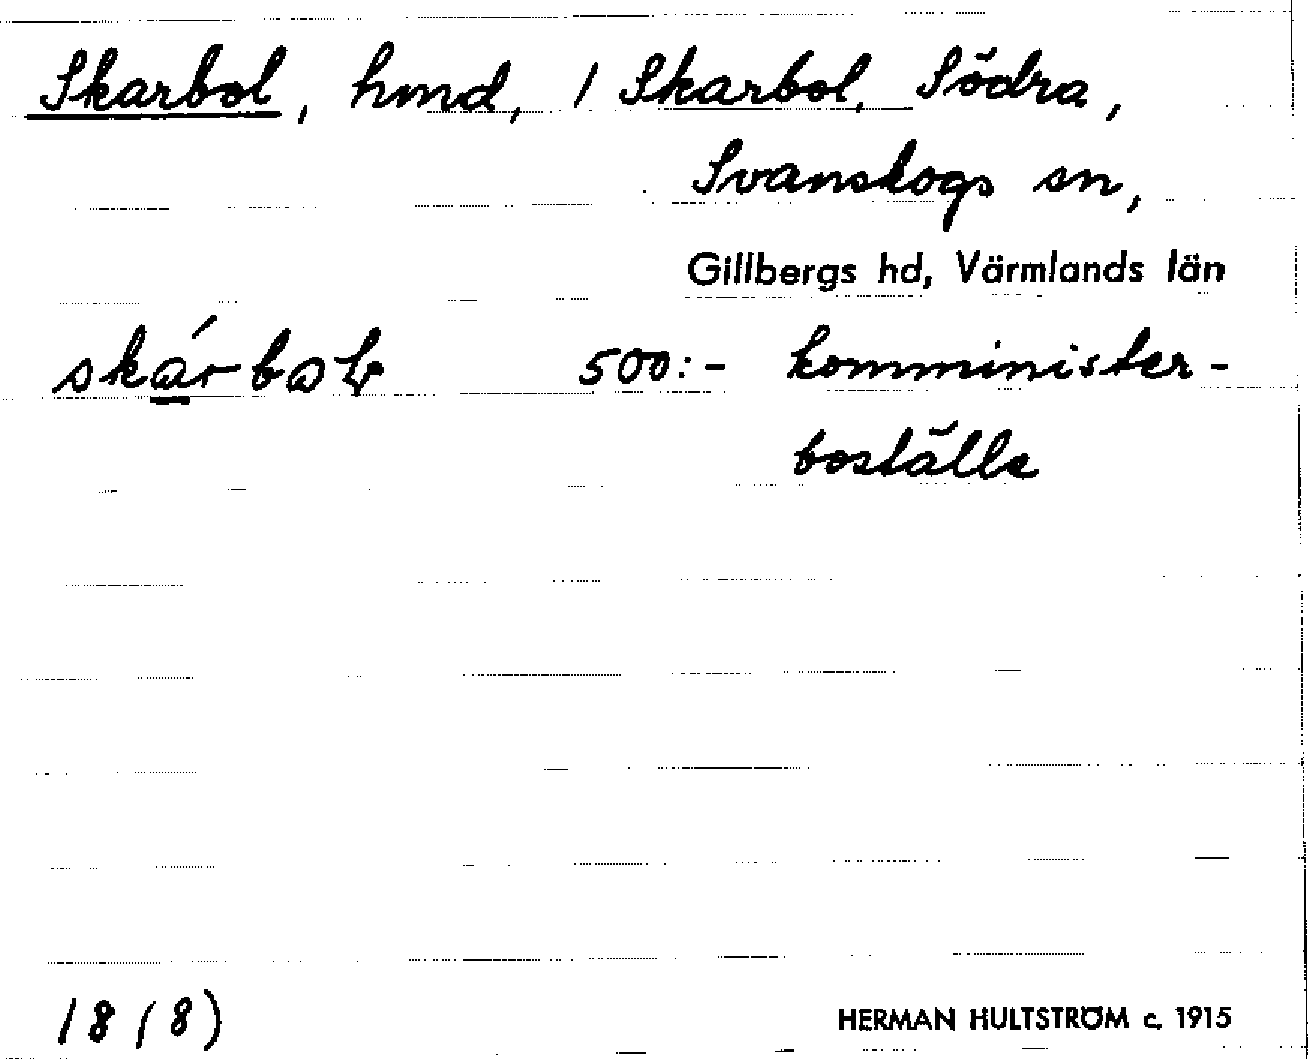 Skarbol, hmd, 1 Skarbol, Södra,
Svanskogs sn,
Gillbergs hd, Värmlands län
500:- komminister-
boställe
18 (8)
HERMAN HULTSTRÖM c. 1915